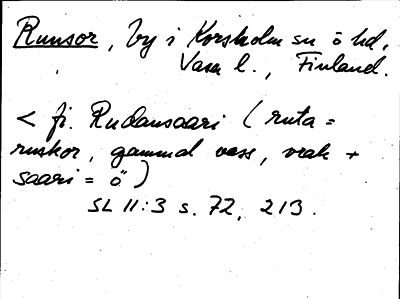 Runsor, by i Korsholm sn ö hd,
Vasa l., Finland.
< fi. Rudansaari (ruta =
ruskor, gammal vass, vrak +
saari = ö)
SL 11:3 s. 72, 213.